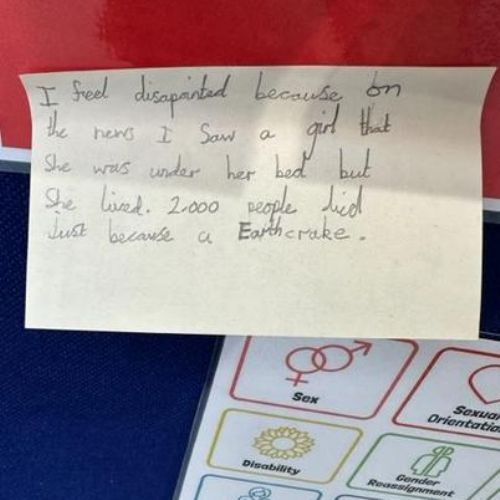 I freel disapointed because on
the news I Saw a girl that
She was under her bed but
She lived. 2.000 people died
Just because a Earthcrake.
Sex
Sexual
Orientation
Disability
Gender
Reassignment